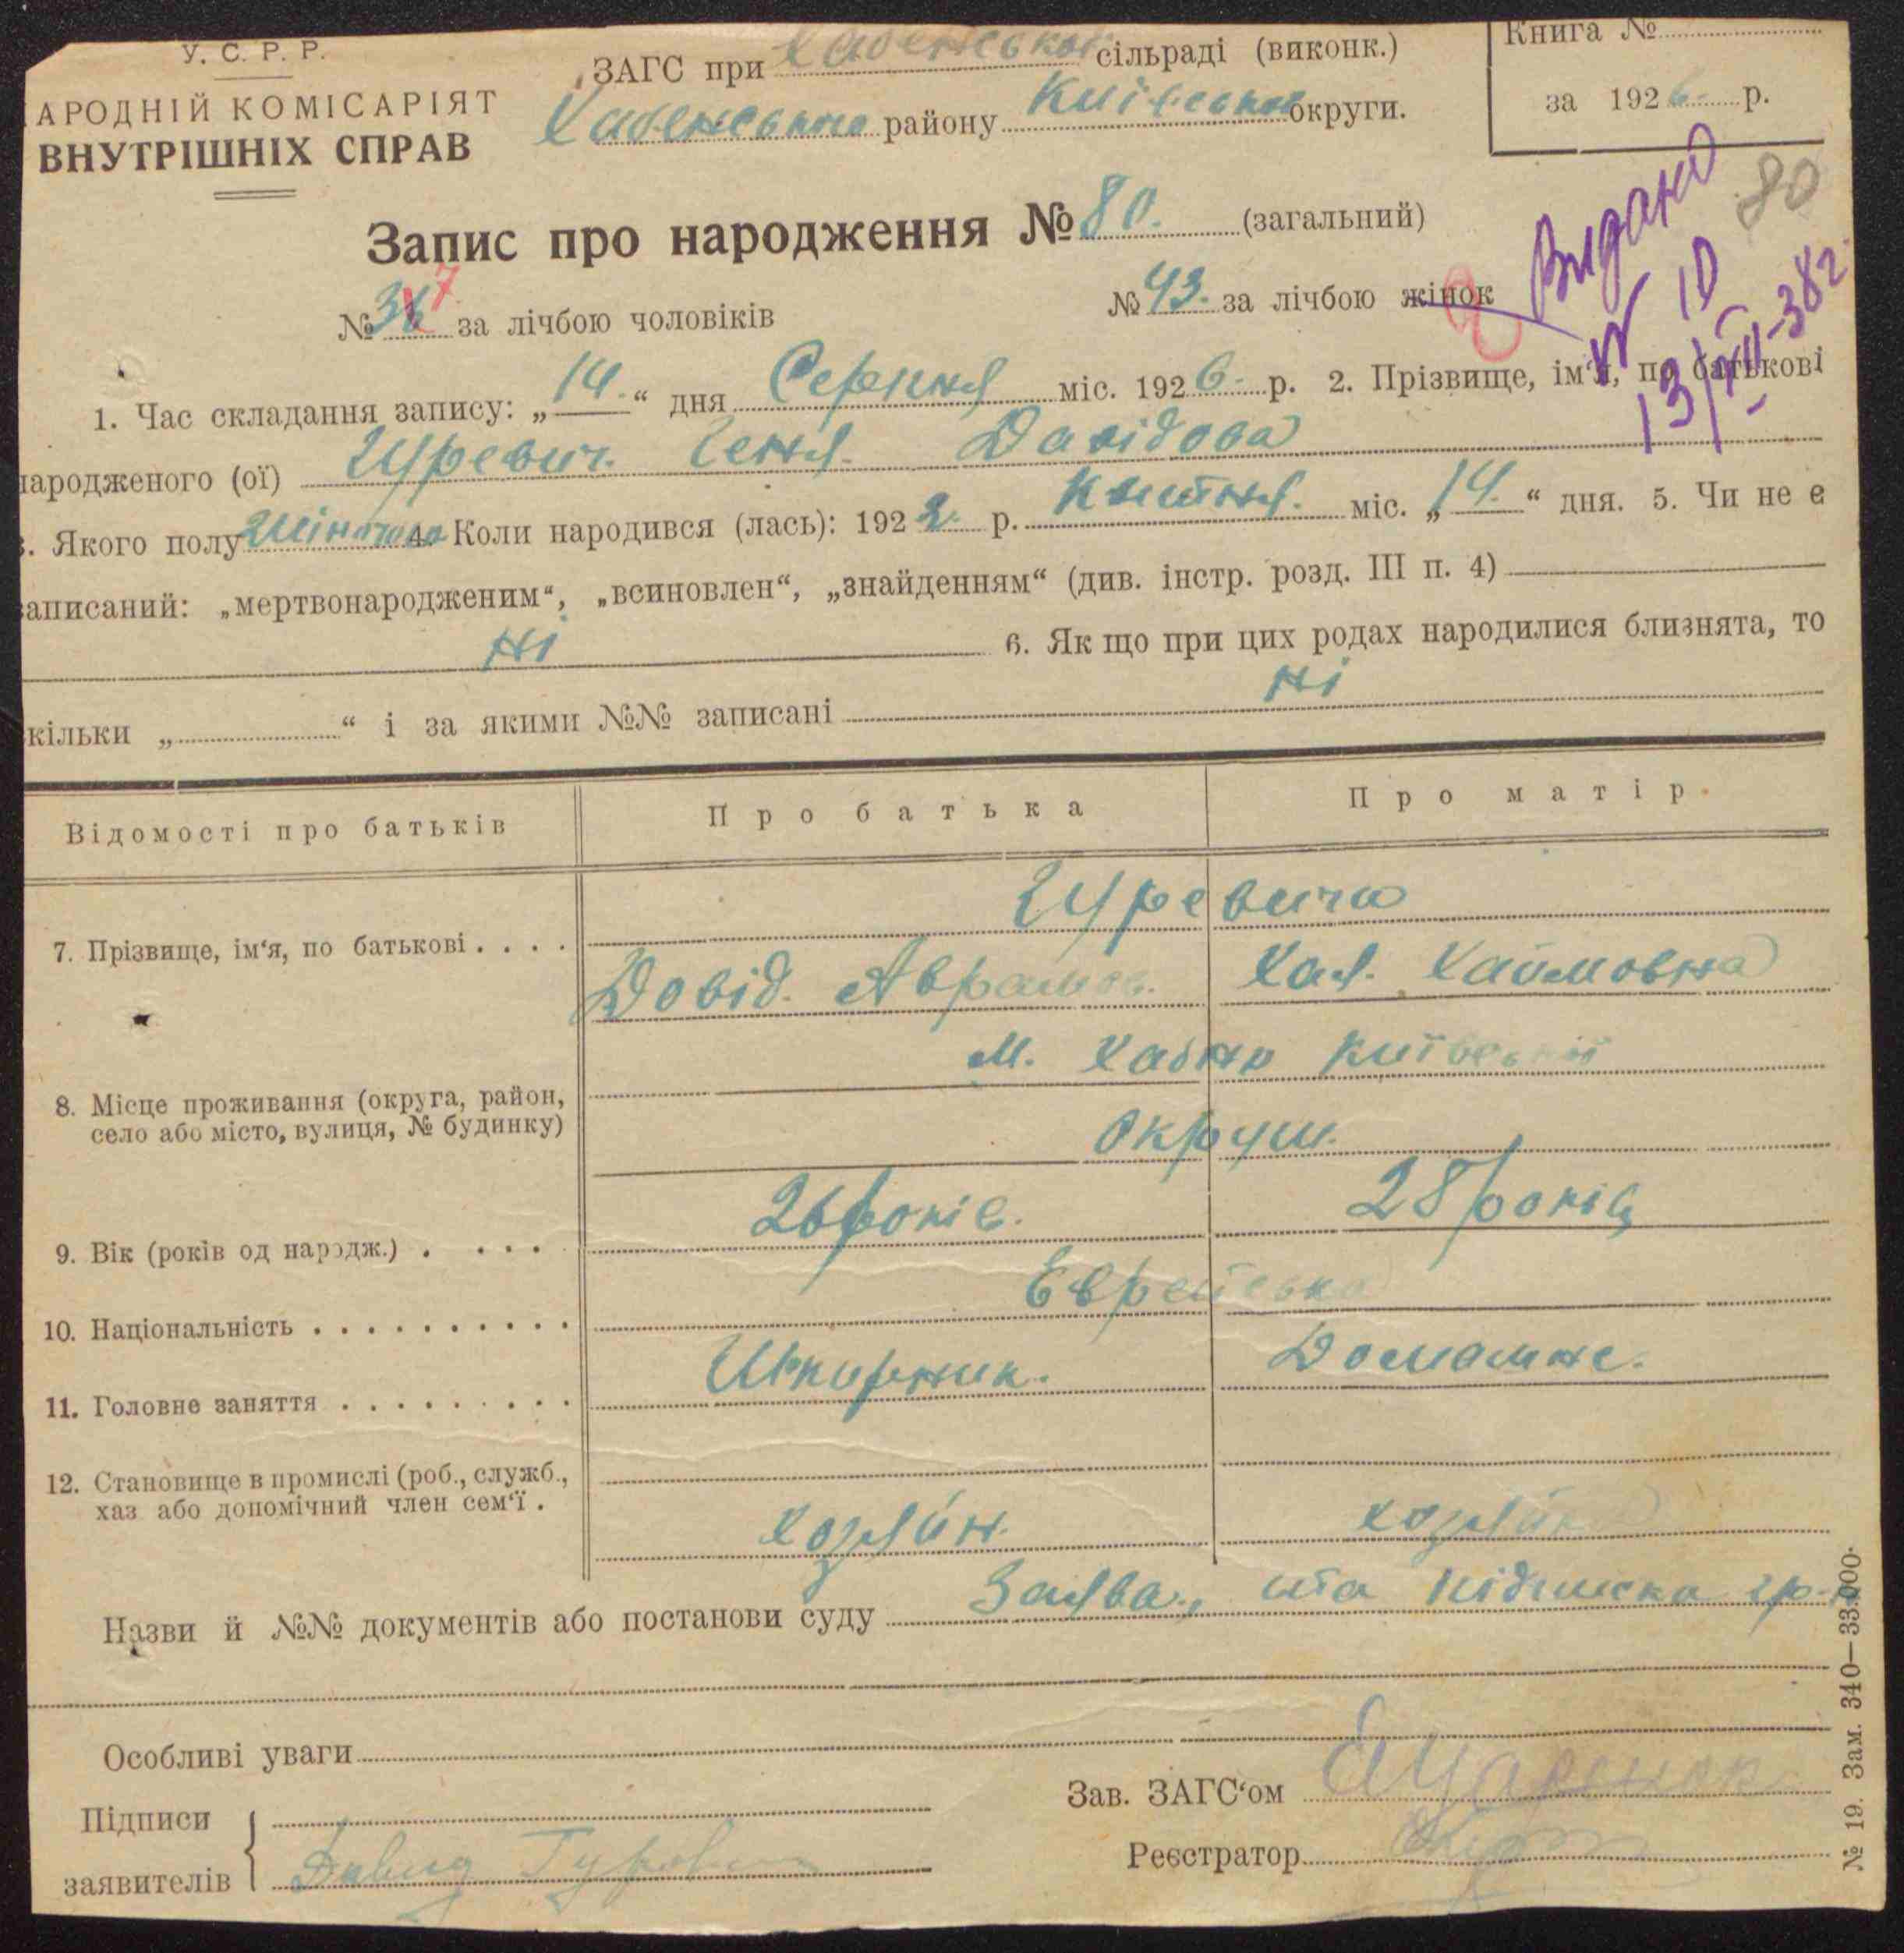 У. С. Р. Р.
АРОДНІЙ КОМІСАРІЯТ
ВНУТРІШНІХ СПРАВ
ЗАГС при Хабенської сільраді (виконк.)
Хабенського району Київської округи.
Книга №
за 1926 р.
80
Видано
13/XII-38
Запис про народження № 80. (загальний)
№ 36 7 за лічбою чоловіків
№ 43. за лічбою жінок
1. Час складання запису: „14.“ дня Серпня міс. 1926. р. 2. Прізвище, ім'я, по батькові
народженого (ої) Гуревич. Геня. Давідова
3. Якого полу жіночого 4. Коли народився (лась): 192 р. Квітня. міс. „14.“ дня. 5. Чи не є
записаний: „мертвонародженим“, „всиновлен“, „знайденням“ (див. інстр. розд. III п. 4)
Ні 6. Як що при цих родах народилися близнята, то
кільки „ “ і за якими №№ записані ні
Відомості про батьків Про батька Про матір.
7. Прізвище, ім'я, по батькові . . . . Гуревичи
Довід. Аврамов. Хая. Хаймовна
8. Місце проживання (округа, район, село або місто, вулиця, № будинку) м. Хабно Київської
Округи.
9. Вік (років од народж.) . . . . 26 років. 28 років
10. Національність . . . . . . . . . . Єврейська
11. Головне заняття . . . . . . . . . Шкирник. Домашнє.
12. Становище в промислі (роб., служб.,
хаз або допомічний член сем'ї . Хозяїн. хозяїн
Назви й №№ документів або постанови суду Заява, та підписка гр-
Особливі уваги
Підписи
заявителів Давид Гуревич
Зав. ЗАГС'ом
Реєстратор
№ 19. Зам. 340—33.000.